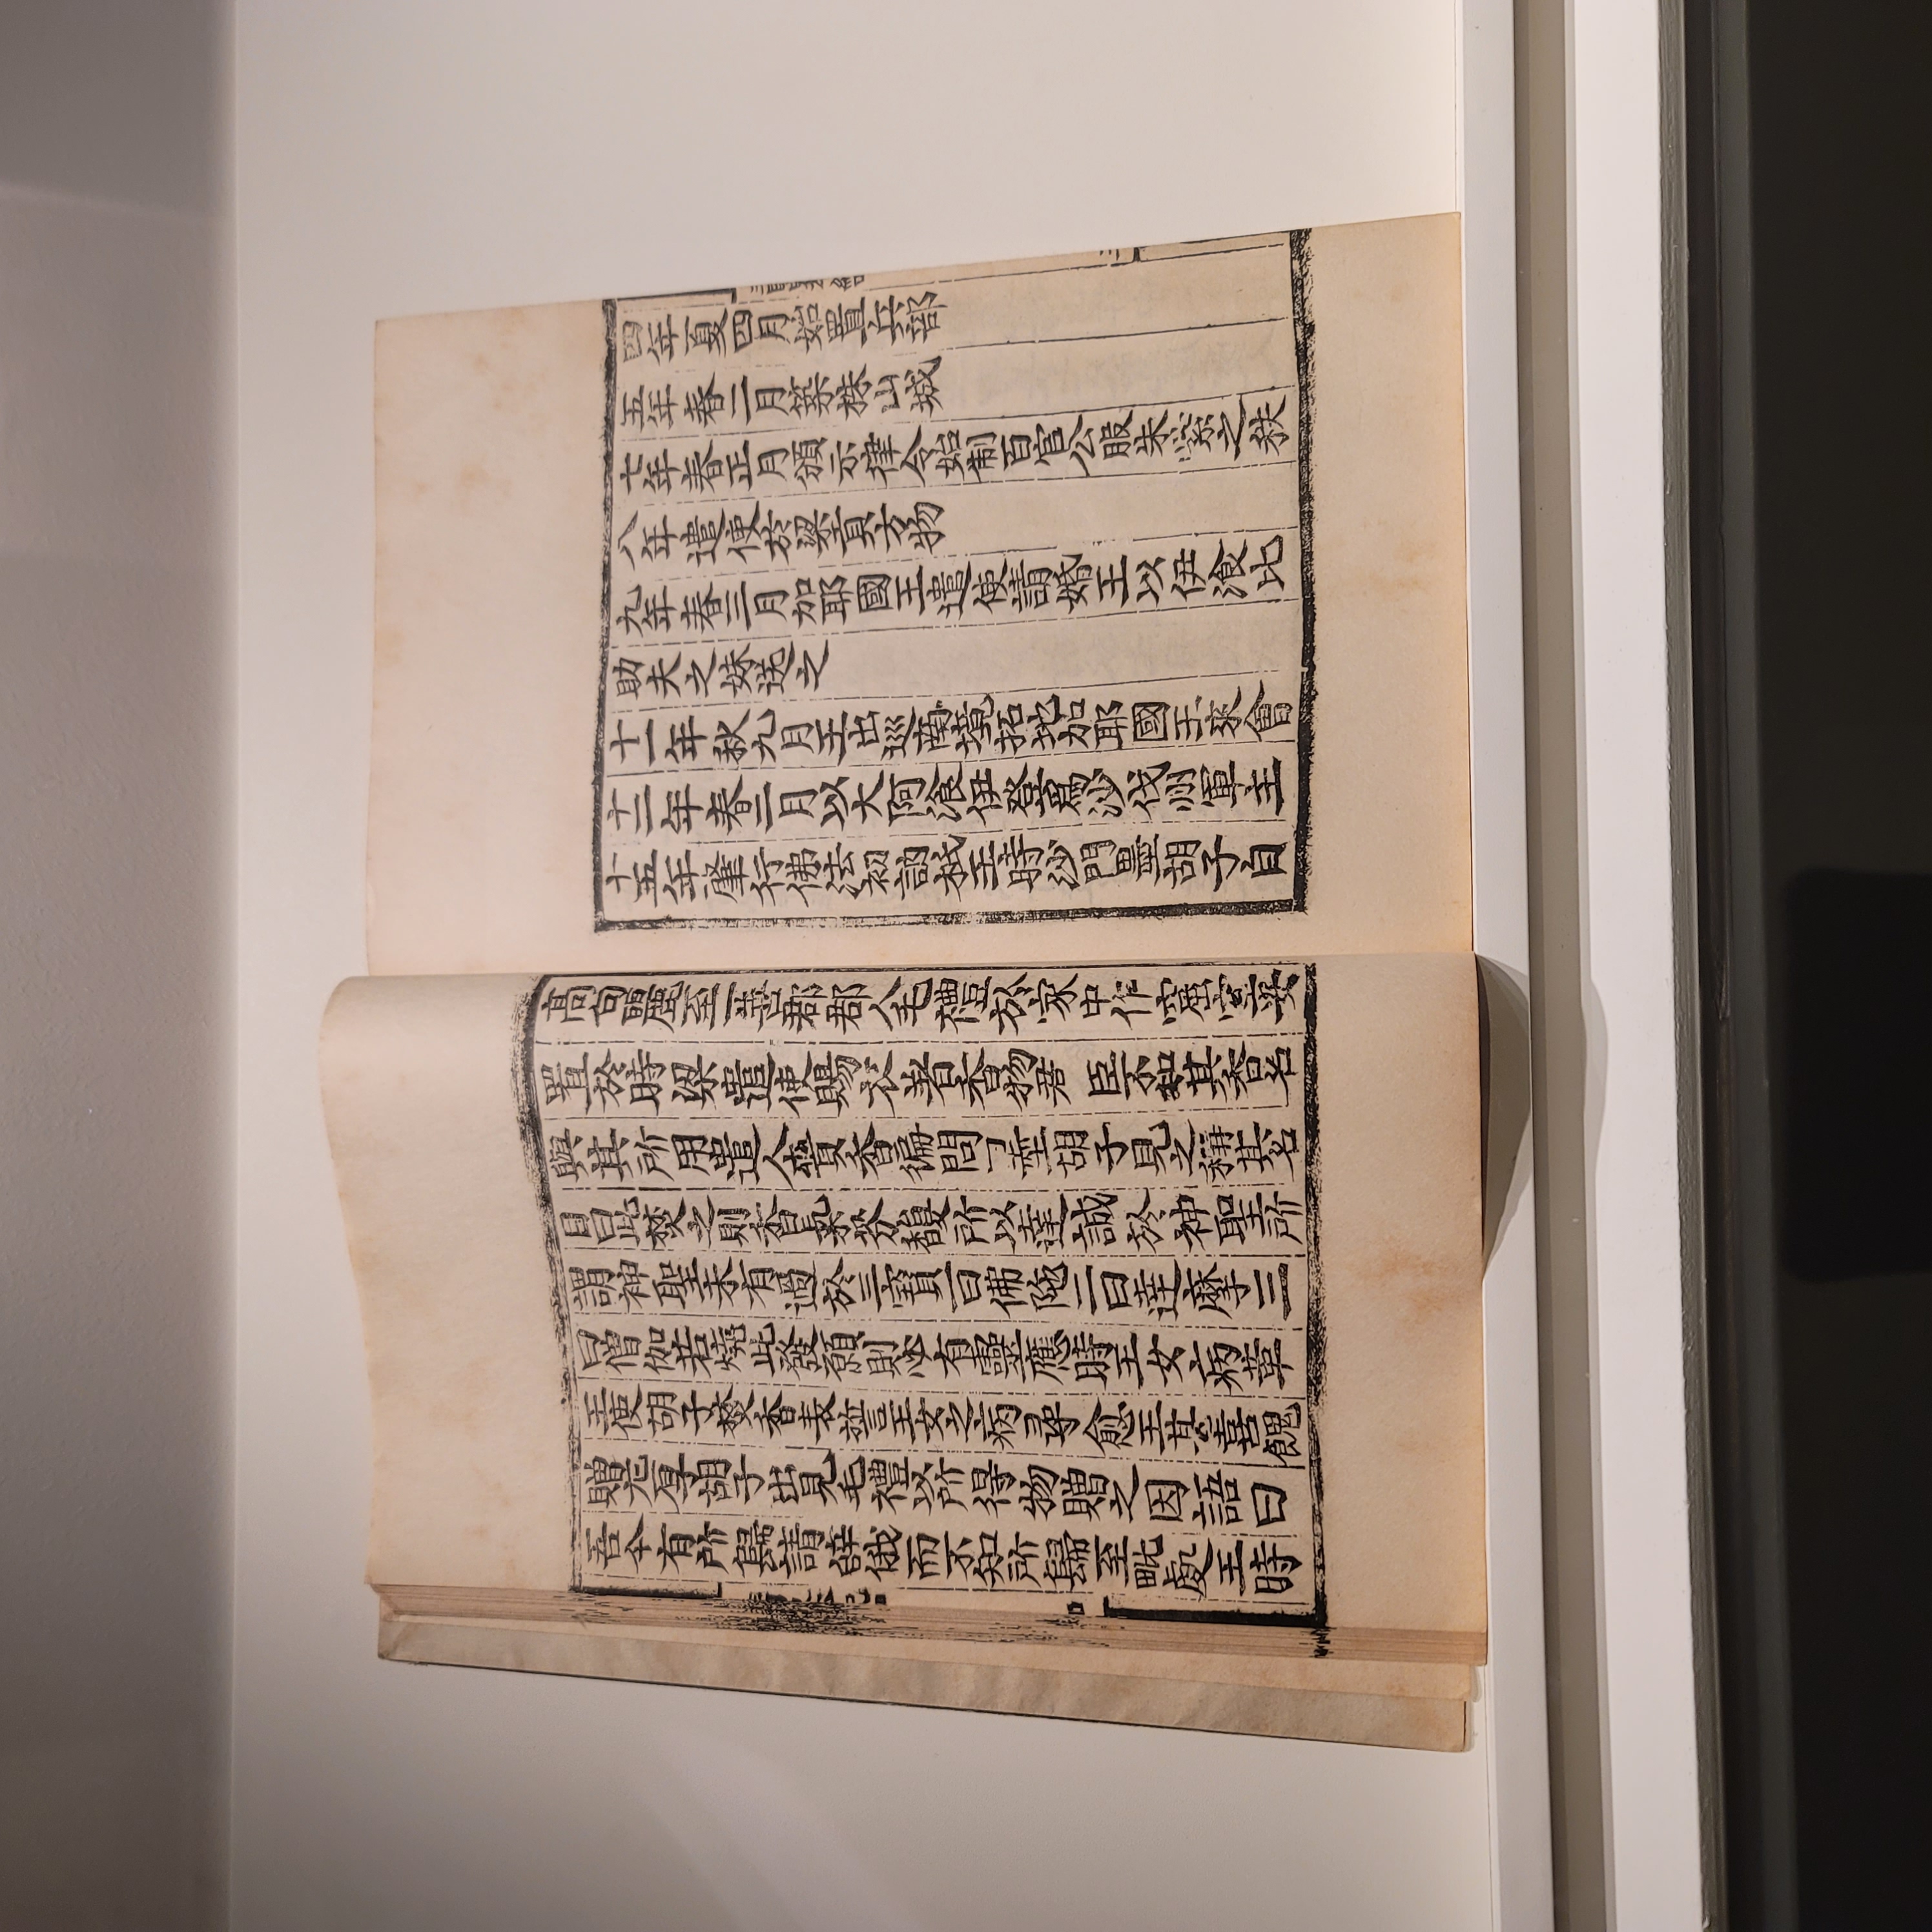 四年夏四月始置兵部
五年春二月築株山城
七年春正月頒示律令始制百官公服朱紫之秩
八年遣使於梁貢方物
九年春三月加耶國王遣使請婚王以伊飡比
助夫之妹送之
十一年秋九月王出巡南境拓地加耶國王來會
十二年春二月以大阿飡伊登爲沙伐州軍主
十五年肇行佛法初訥祗王時沙門墨胡子自
高句麗至一善郡郡人毛禮於家中作窟室安
置於時梁遣使賜衣着香物君臣不知其香名
與其所用遣人賫香徧問墨胡子見之稱其名
目曰此焚之則香氣芬馥所以達誠於神聖所
謂神聖未有過於三寶一曰佛陁二曰達摩三
曰僧伽若燒此發願則必有靈應時王女病革
王使胡子焚香表誓王女之病尋愈王甚喜餽
贈尤厚胡子出見毛禮以所得物贈之因語曰
吾今有所歸請辭俄而不知所歸至毗處王時